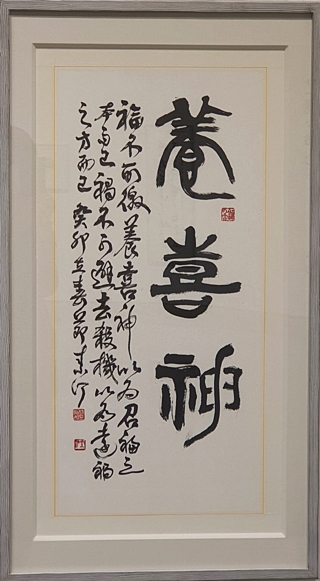 養喜神
福不可徼養喜神以為召福之
本而已禍不可避去殺機以為遠禍
之方而已 癸卯立春節